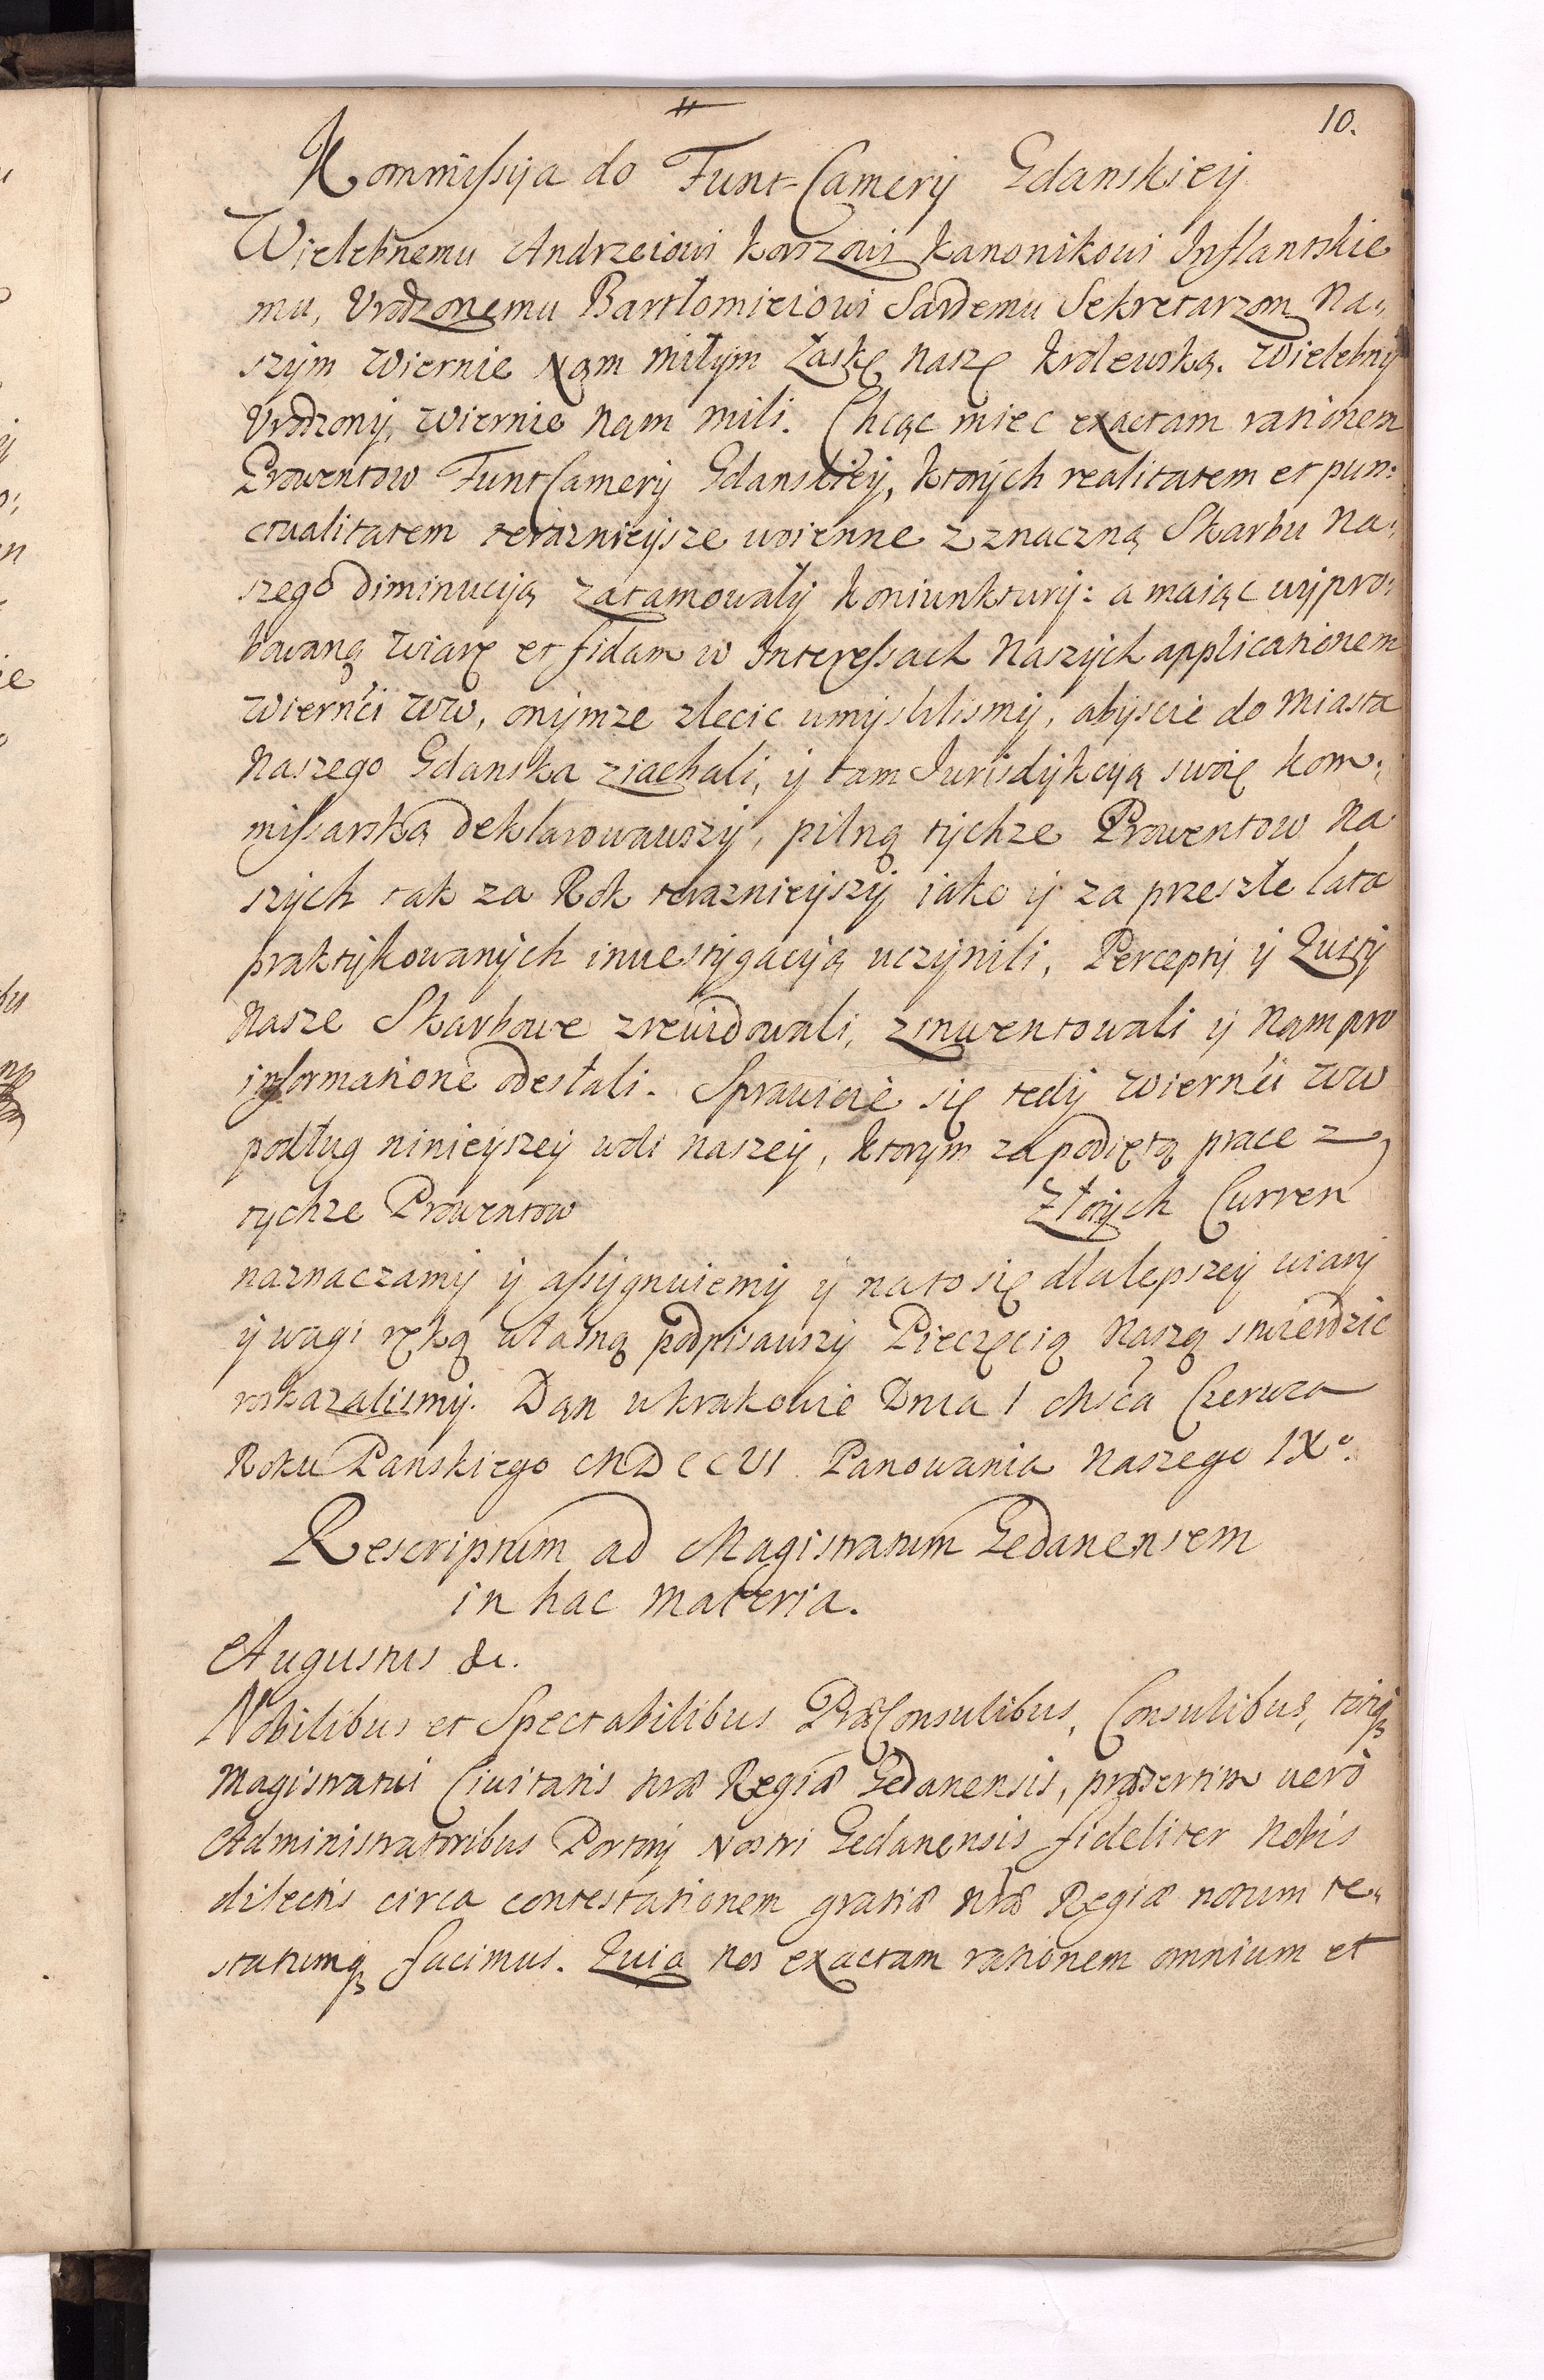 10.
Kommissyia do Funt-Camery Gdanskiey
Wielebnemu Andrzeiowi Korszowi Kanonikowi Inflantskie
mu, Vrodzonemu Bartłomieiowi Sardemu Sekretarzom Na:
szym Wiernie Nąm miłym Łaskę naszę krolewską. Wielebny
Vrodzony, wiernie nąm mili. Chcąc miec exactam rationem
Prowentow FuntCamery Gdanskiey, ktorych realitatem et pun:
ctualitatem teraznieysze woienne z znaczną Skarbu Na:
szego diminucyą zatamowały koniunktury: a maiąc wypro:
bowaną wiarę et fidam w Interessach Naszych applicationem
Wiernći WW, onymze zlecic umyslilismy, abyscie do Miasta
Naszego Gdanska ziachali, y tam Jurisdykcyą swoię kom:
missarską deklarowawszy, pilną tychze Prowentow Na
szych tak za Rok teraznieyszy iako y za przeszłe lata
praktykowanych inuestygacyą uczynili, Percepty y Quity
Nasze Skarbowe zrewidowali, zinwentowali y Nam pro
informatione odesłali. Sprawicie się tedy Wiernći WW
podług ninieyszey woli naszey, ktorym za podiętą prace z
tychze Prowentow Złotych Curren
naznaczamy y assygnuiemy y na to się dla lepszey wiary
y wagi ręką własną podpisawszy Pieczęcią Naszą stwierdzic
roskazalismy. Dąn w Krakowie Dnia 1 Msca Czerwca
Roku Panskiego MDCCVI Panowania Naszego IX°.
Rescriptum ad Magistratum Gedanensem
in hac materia.
Augustus &c.
Nobilibus et Spectabilibus PræConsulibus, Consulibus, totiqȝ
Magistratui Ciuitatis nræ Regiæ Gedanensis, præsertim verò
Administratoribus Portorij Nostri Gedanensis fideliter Nobis
dilectis circa contestationem gratiæ nræ Regiæ notum te„
statumqȝ facimus. Quia nos exactam rationem omnium et